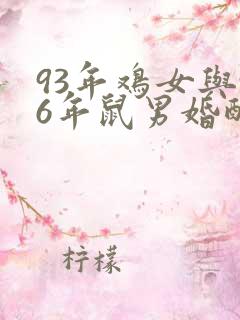 93年鸡女與
6年鼠男婚
柠檬